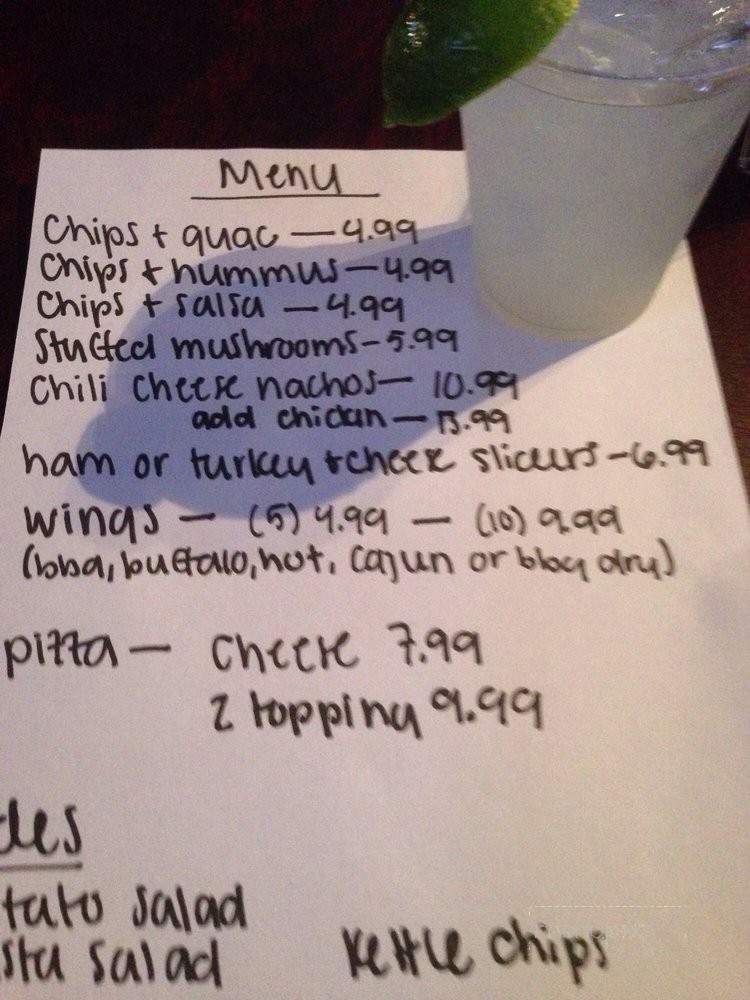 Menu
Chips + guac — 4.99
Chips + hummus — 4.99
Chips + salsa — 4.99
Stuffed mushrooms - 5.99
Chili cheese nachos — 10.99
add chicken — 13.99
ham or turkey + cheese slicers - 6.99
wings — (5) 4.99 — (10) 9.99
(bbq, buffalo, hot, cajun or bbq dry)
pizza — cheese 7.99
2 topping 9.99
des
tato salad
sta salad
kettle chips